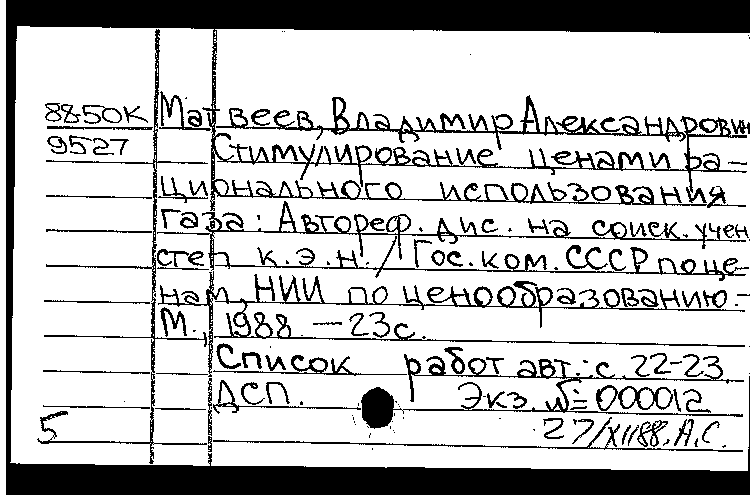 88-50К Матвеев, Владимир Александрович
9527 Стимулирование ценами ра-
ционального использования
газа: Автореф. дис. на соиск. учен
степ к.э.н. / Гос. ком. СССР по це-
нам, НИИ по ценообразованию.-
М., 1988 — 23с.
Список работ авт.: с. 22-23.
ДСП. Экз. № 000012
5 27/XII88. А.С.